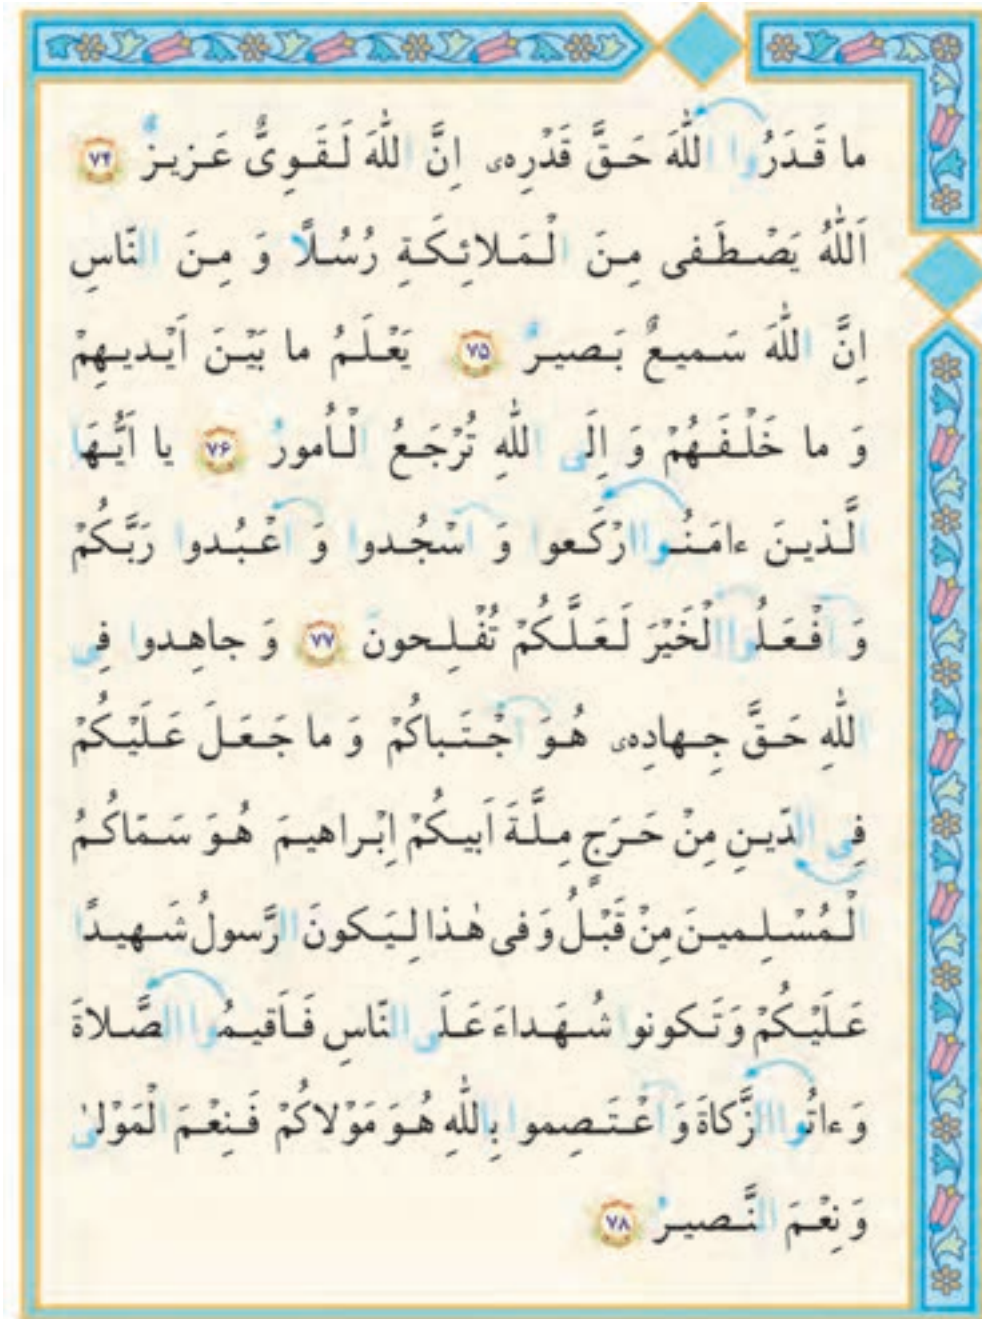 ما قَدَرُوا اللّٰهَ حَقَّ قَدْرِهٖ اِنَّ اللّٰهَ لَقَوِىٌّ عَزيزٌ ﴿۷۴﴾
اَللّٰهُ يَصْطَفى مِنَ الْمَلائِكَةِ رُسُلًا وَ مِنَ النّاسِ
اِنَّ اللّٰهَ سَميعٌ بَصيرٌ ﴿۷۵﴾ يَعْلَمُ ما بَيْنَ اَيْديهِمْ
وَ ما خَلْفَهُمْ وَ اِلَى اللّٰهِ تُرْجَعُ الْاُمورُ ﴿۷۶﴾ يا اَيُّهَا
الَّذينَ ءامَنُوا ارْكَعوا وَ اسْجُدوا وَ اعْبُدوا رَبَّكُمْ
وَ افْعَلُوا الْخَيْرَ لَعَلَّكُمْ تُفْلِحونَ ﴿۷۷﴾ وَ جاهِدوا فِى
اللّٰهِ حَقَّ جِهادِهٖ هُوَ اجْتَباكُمْ وَ ما جَعَلَ عَلَيْكُمْ
فِى الدّينِ مِنْ حَرَجٍ مِلَّةَ اَبيكُمْ اِبْراهيمَ هُوَ سَمّاكُمُ
الْمُسْلِمينَ مِنْ قَبْلُ وَ فى هٰذا لِيَكونَ الرَّسولُ شَهيدًا
عَلَيْكُمْ وَ تَكونوا شُهَداءَ عَلَى النّاسِ فَاَقيمُوا الصَّلاةَ
وَ ءاتُوا الزَّكاةَ وَ اعْتَصِموا بِاللّٰهِ هُوَ مَوْلاكُمْ فَنِعْمَ الْمَوْلىٰ
وَ نِعْمَ النَّصيرُ ﴿۷۸﴾